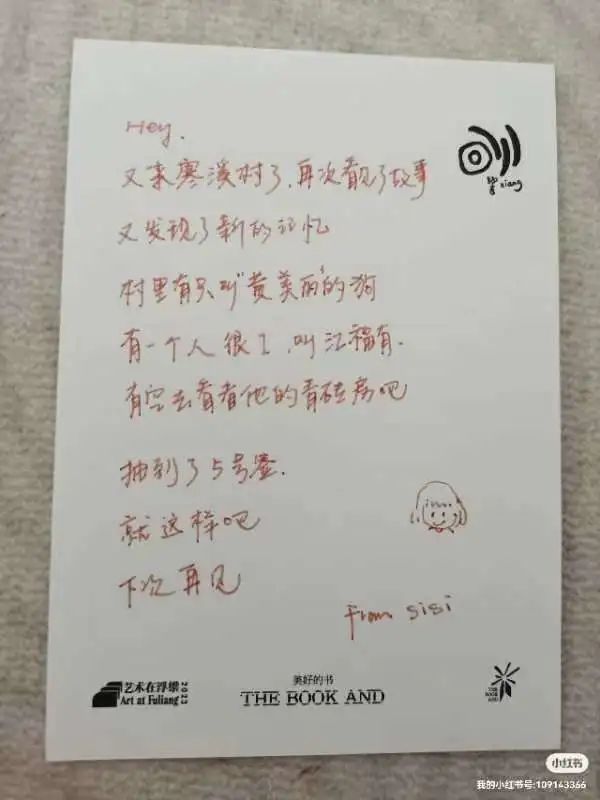 Hey.
又来寒溪村了,再次看见了故事
又发现了新的记忆
村里有只叫"黄美丽"的狗
有一个人很工,叫江福有.
有空去看看他的青砖房吧
抽到了5号签.
就这样吧
下次再见
From sisi
响 xiang
艺术在浮梁 2023
Art at Fuliang
美好的书
THE BOOK AND
THE BOOK AND
小红书
我的小红书号:109143366